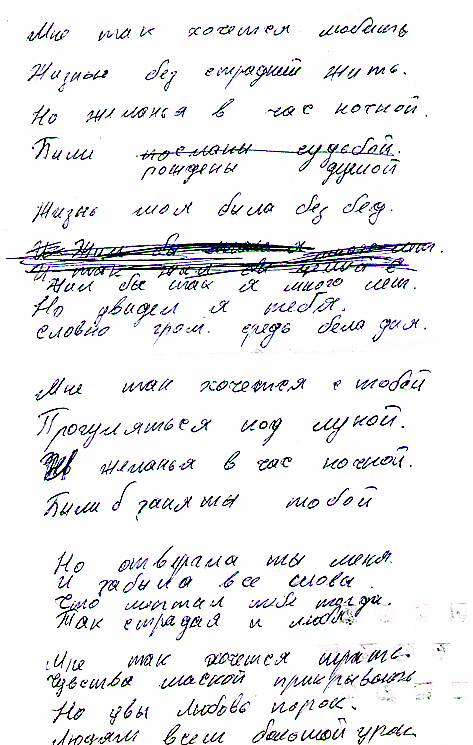 Мне так хочется любить
Жизнью без страданий жить.
Но желанья в час ночной.
Были посланы судьбой.
рождены думой
Жизнь моя была без бед.
Жил бы так я много лет.
Но увидел я тебя.
словно гром. средь бела дня.
Мне так хочется с тобой
Прогуляться под луной.
желанья в час ночной.
Были б заняты тобой
Но отвергла ты меня.
И забыла все слова.
Что шептал тебе тогда.
Так страдая и любя
Мне так хочется играть.
Чувства маской прикрывать
Но увы любовь порок.
Людям всем большой урок